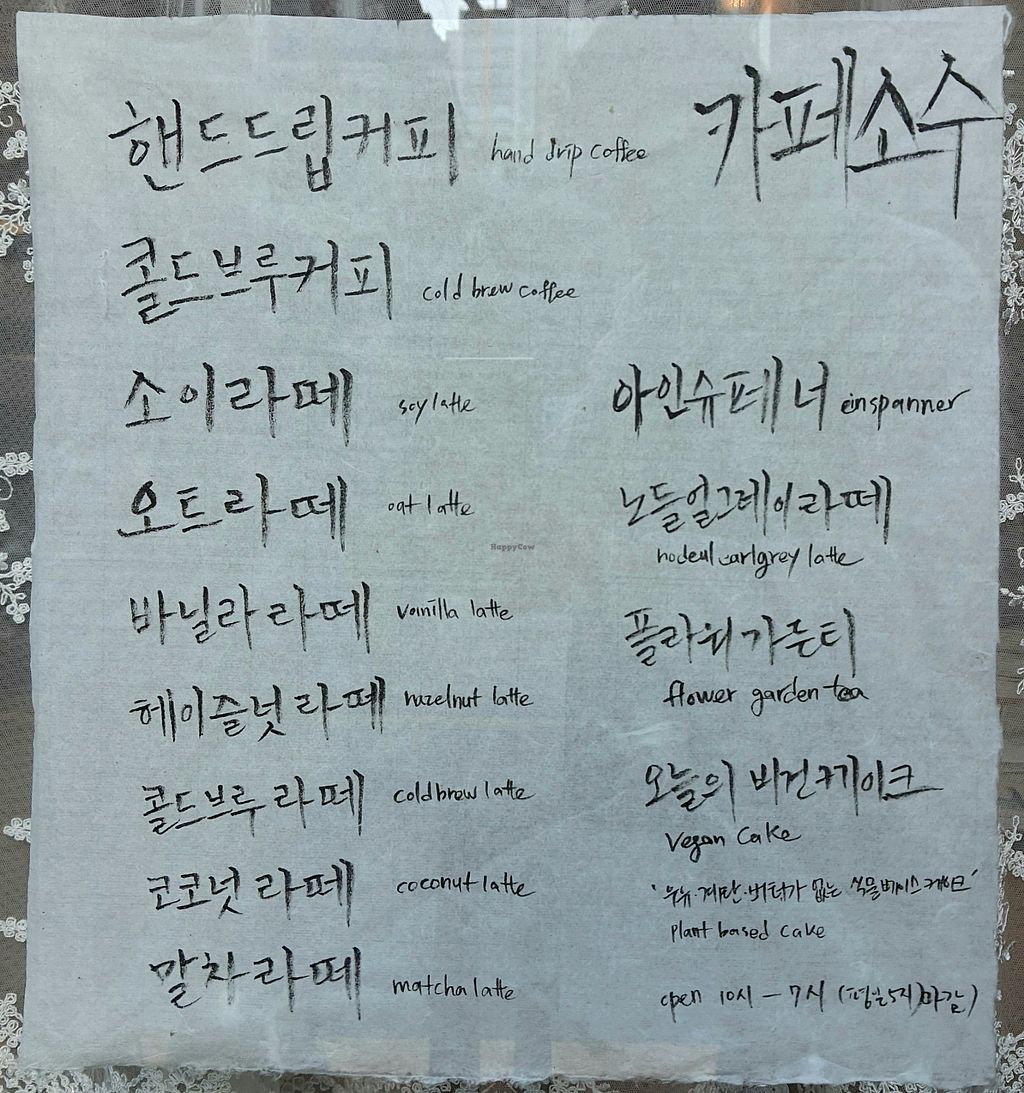 카페소수
핸드드립커피 hand drip coffee
콜드브루커피 cold brew coffee
소이라떼 soy latte
오트라떼 oat latte
바닐라라떼 vainilla latte
헤이즐넛라떼 hazelnut latte
콜드브루라떼 coldbrew latte
코코넛라떼 coconut latte
말차라떼 matcha latte
아인슈페너 einspanner
노들얼그레이라떼
nodeul earlgrey latte
플라워가든티
flower garden tea
오늘의 비건케이크
Vegan Cake
'우유·계란·버터가 없는 식물베이스케이크'
plant based cake
open 10시 - 7시 (평일5시)마감)
HappyCow